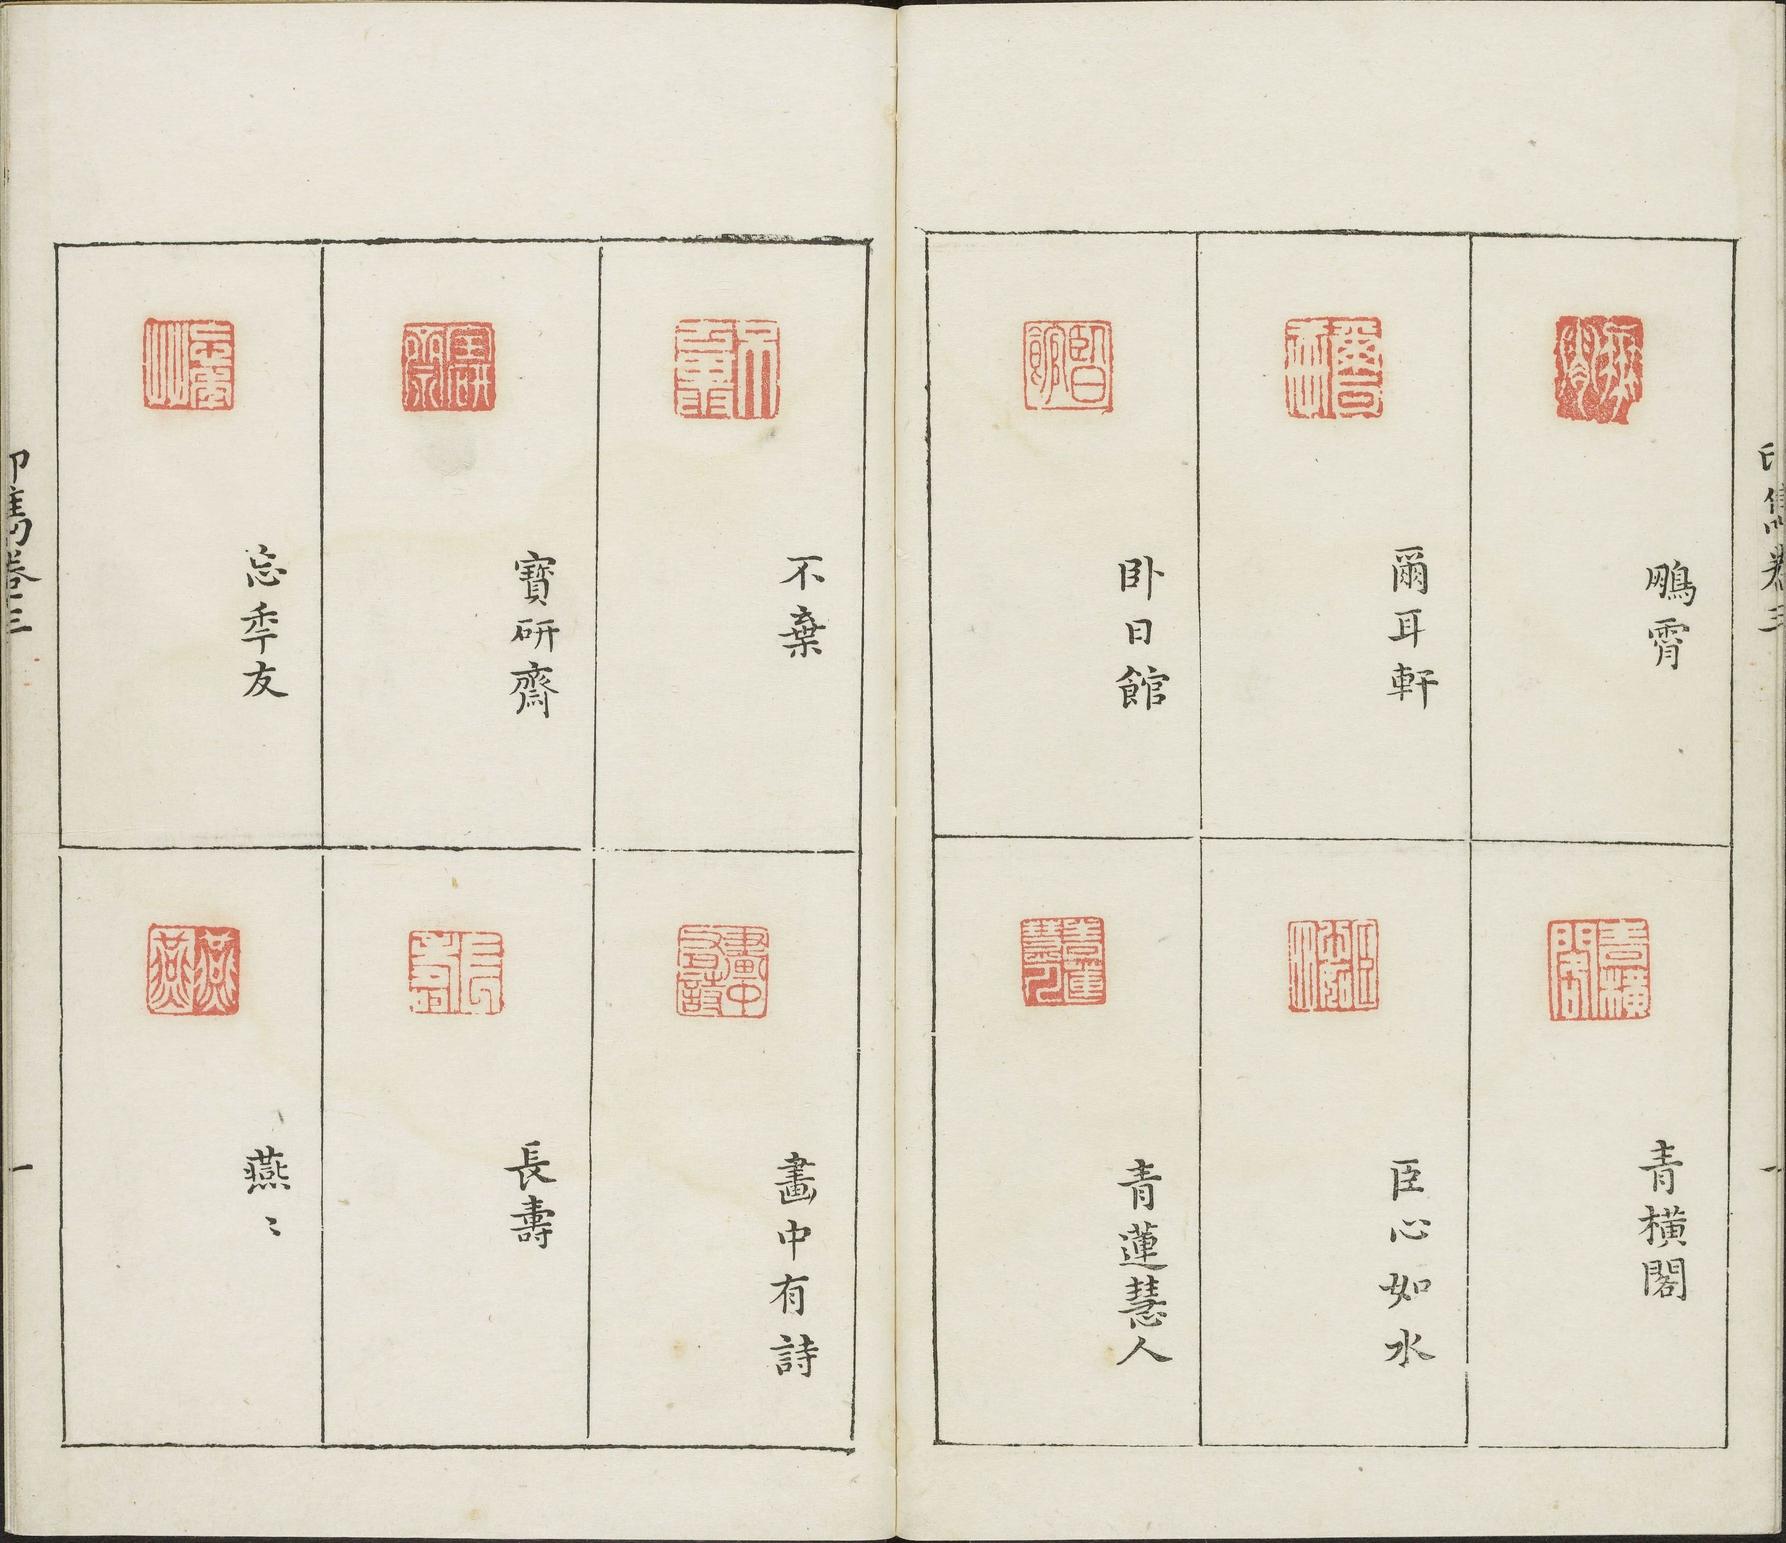 印雋卷三
一
鵬霄
爾耳軒
卧日館
青橫閣
臣心如水
青蓮慧人
不棄
寶研齋
忘秊友
畫中有詩
長壽
燕〻
印雋卷三
一